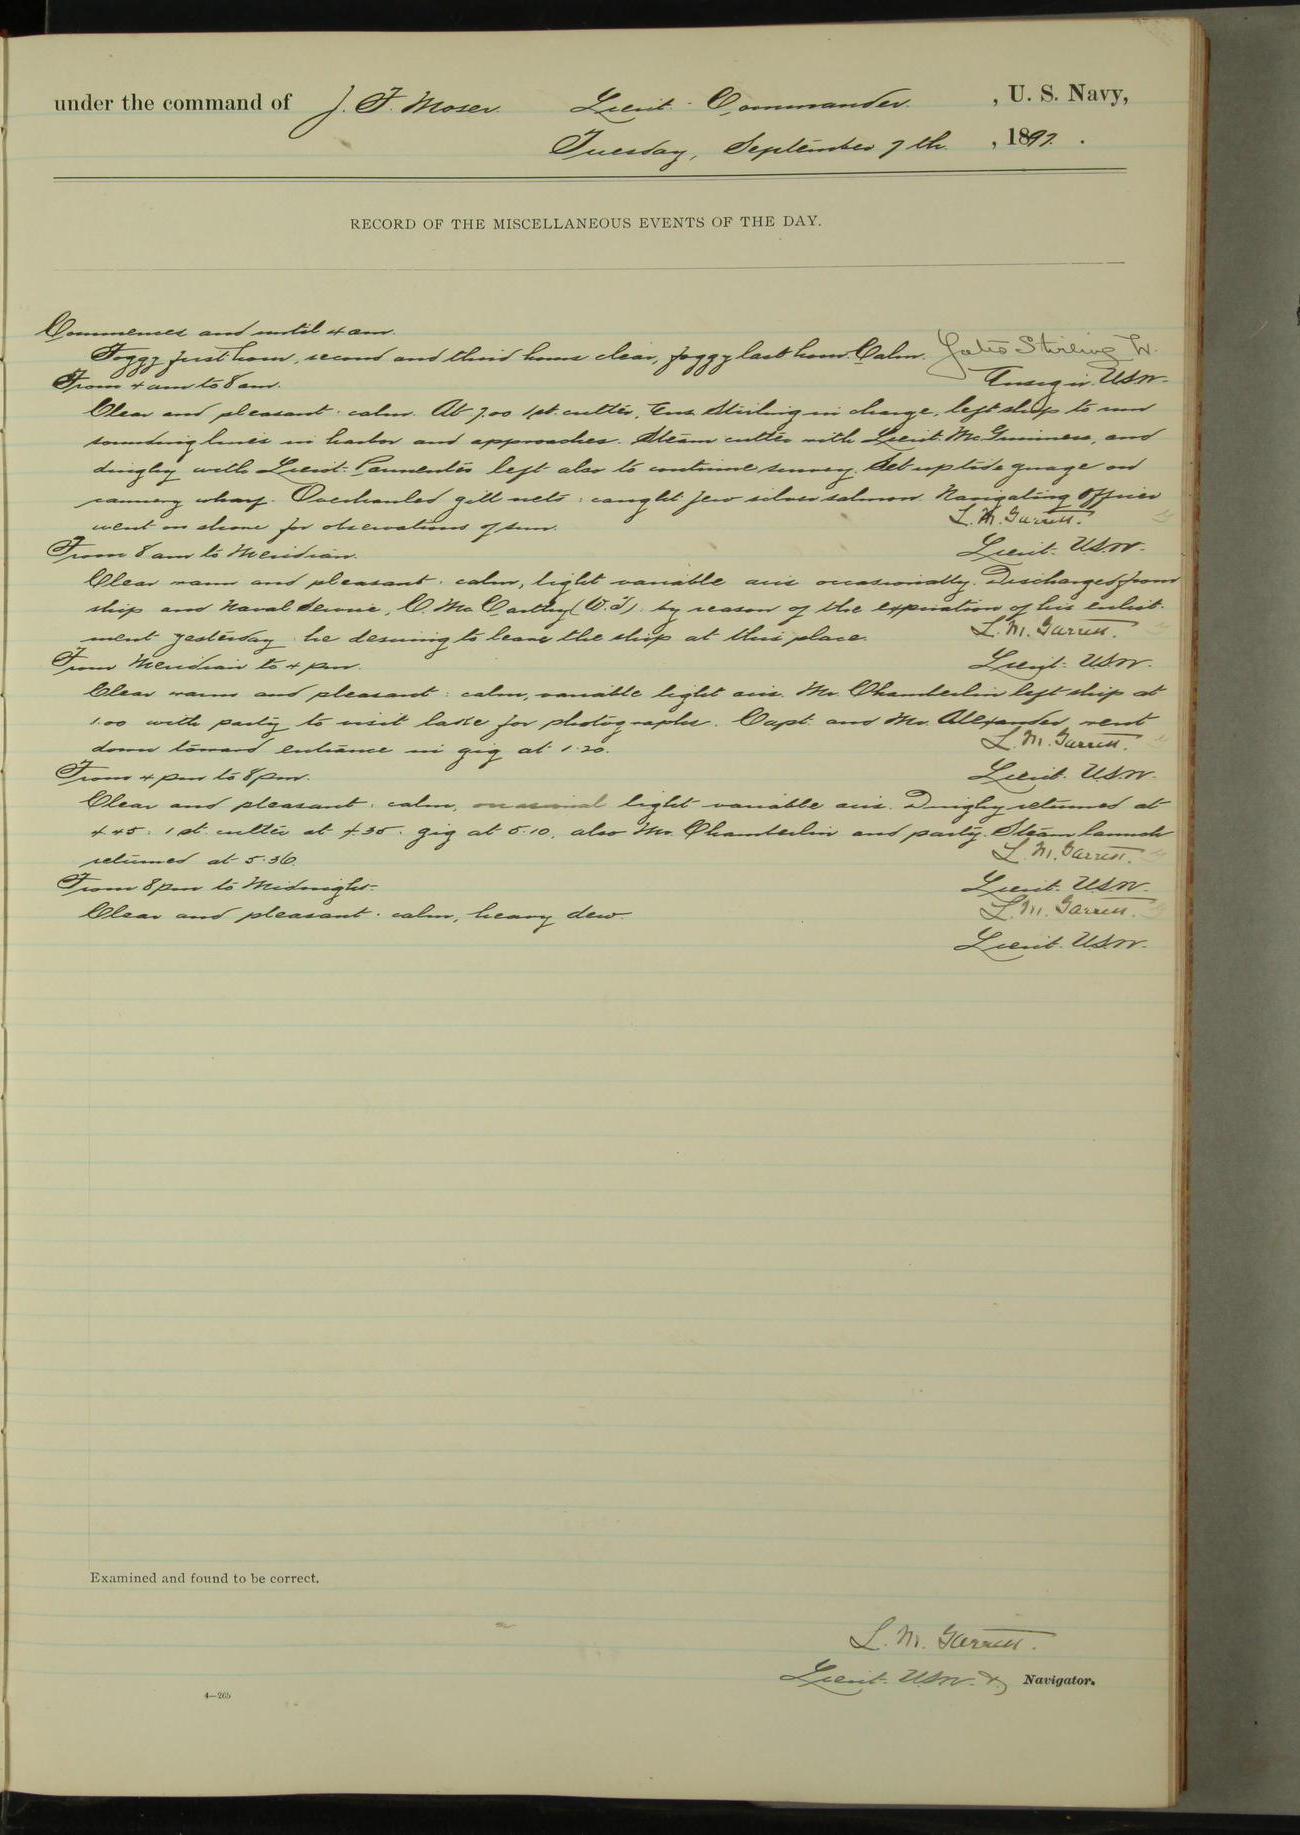 under the command of J. F. Moser Lieut. Commander, U. S. Navy,
Tuesday, September 7th, 1897.
RECORD OF THE MISCELLANEOUS EVENTS OF THE DAY.
Commences and until 4 am.
Foggy first hour, second and third hours clear, foggy last hour. Calm. Yates Stirling Jr.
From 4 am to 8 am. Ensign USN.
Clear and pleasant: calm. At 7.00 1st. cutter, Ens. Stirling in charge, left ship to run
sounding lines in harbor and approaches. Steam cutter with Lieut. McGuinness, and
dinghy with Lieut. Parmenter left also to continue survey. Set up tide guage on
cannery wharf. Overhauled gill nets: caught few silver salmon. Navigating Officer
went on shore for observations of sun. L. M. Garrett.
From 8 am to Meridian. Lieut. USN.
Clear warm and pleasant: calm, light variable airs occasionally. Discharged from
ship and Naval Service, C. McCarthy (W.T.) by reason of the expiration of his enlist-
ment yesterday he desiring to leave the ship at this place. L. M. Garrett.
From Meridian to 4 pm. Lieut. USN.
Clear warm and pleasant: calm, variable light airs. Mr. Chamberlin left ship at
1.00 with party to visit lake for photographs. Capt. and Mr. Alexander went
down toward entrance in gig at 1.20. L. M. Garrett.
From 4 pm to 8 pm. Lieut. USN.
Clear and pleasant: calm, occasional light variable airs. Dinghy returned at
4.45: 1st. cutter at 4.35: gig at 5.10, also Mr. Chamberlin and party. Steam launch
returned at 5.36. L. M. Garrett.
From 8 pm to Midnight. Lieut. USN.
Clear and pleasant: calm, heavy dew. L. M. Garrett.
Lieut. USN.
Examined and found to be correct.
L. M. Garrett.
Lieut. USN. & Navigator.
4—265